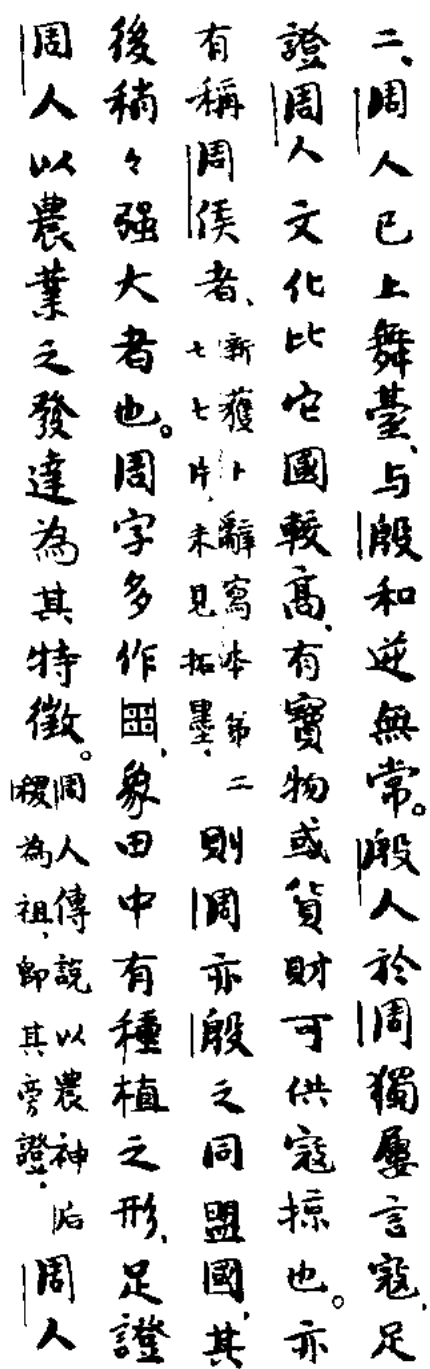 二、周人已上舞臺、与殷和逆無常。殷人於周獨屢言寇、足
證周人文化比它國較高、有寶物或貨財可供寇掠也。亦
有稱周侯者、新獲卜辭寫本第二七七片、未見拓墨、則周亦殷之同盟國、其
後稍々强大者也。周字多作、象田中有種植之形、足證
周人以農業之發達為其特徵。周人傳説以農神后稷為祖、即其旁證、周人